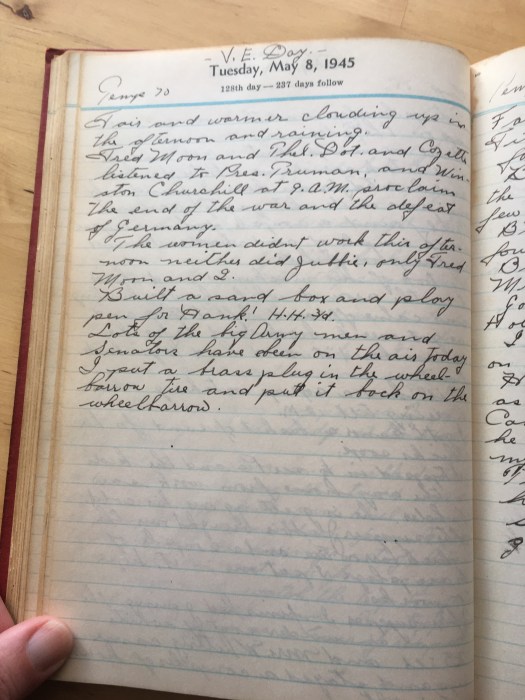 - V. E. Day. -
Tuesday, May 8, 1945
128th day — 237 days follow
Temp 70
Fair and warmer clouding up in
the afternoon and raining.
Fred Moon and Thel. Dot. and Cozette
listened to Pres. Truman, and Win-
ston Churchill at 9. A.M. proclaim
the end of the war and the defeat
of Germany.
The women didnt work this after-
noon neither did Jubbie, only Fred
Moon and I.
Built a sand box and play
pen for "Hank" H.H. 3d.
Lots of the big Army men and
Senators have been on the air today
I put a brass plug in the wheel-
barrow tire and putt it back on the
wheelbarrow.